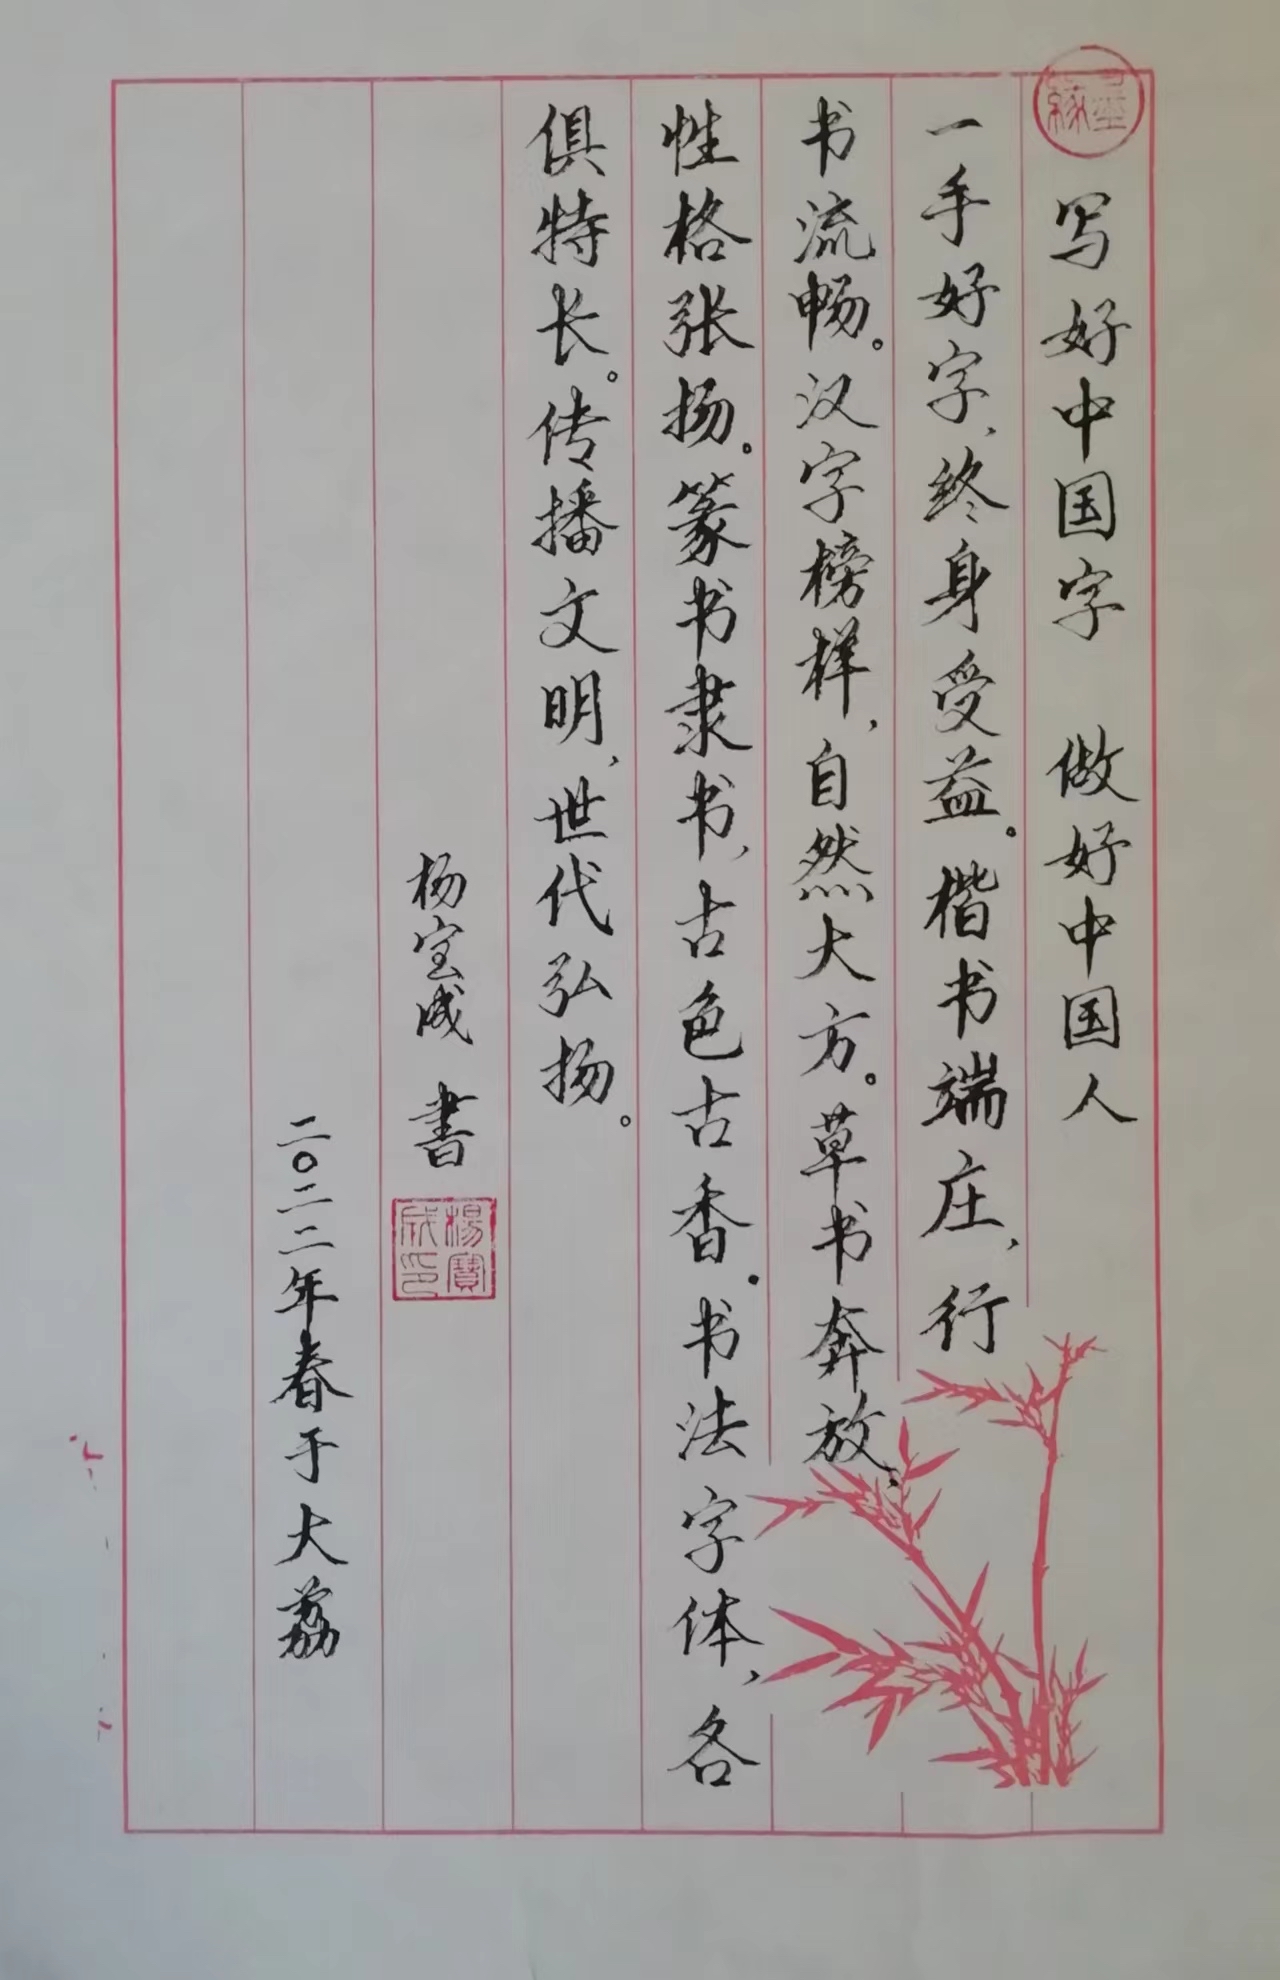 墨缘
写好中国字 做好中国人
一手好字、终身受益。楷书端庄、行
书流畅。汉字榜样，自然大方。草书奔放、
性格张扬。篆书隶书，古色古香。书法字体，各
俱特长。传播文明，世代弘扬。
杨宝成 書
楊寶成印
二〇二二年春于大荔